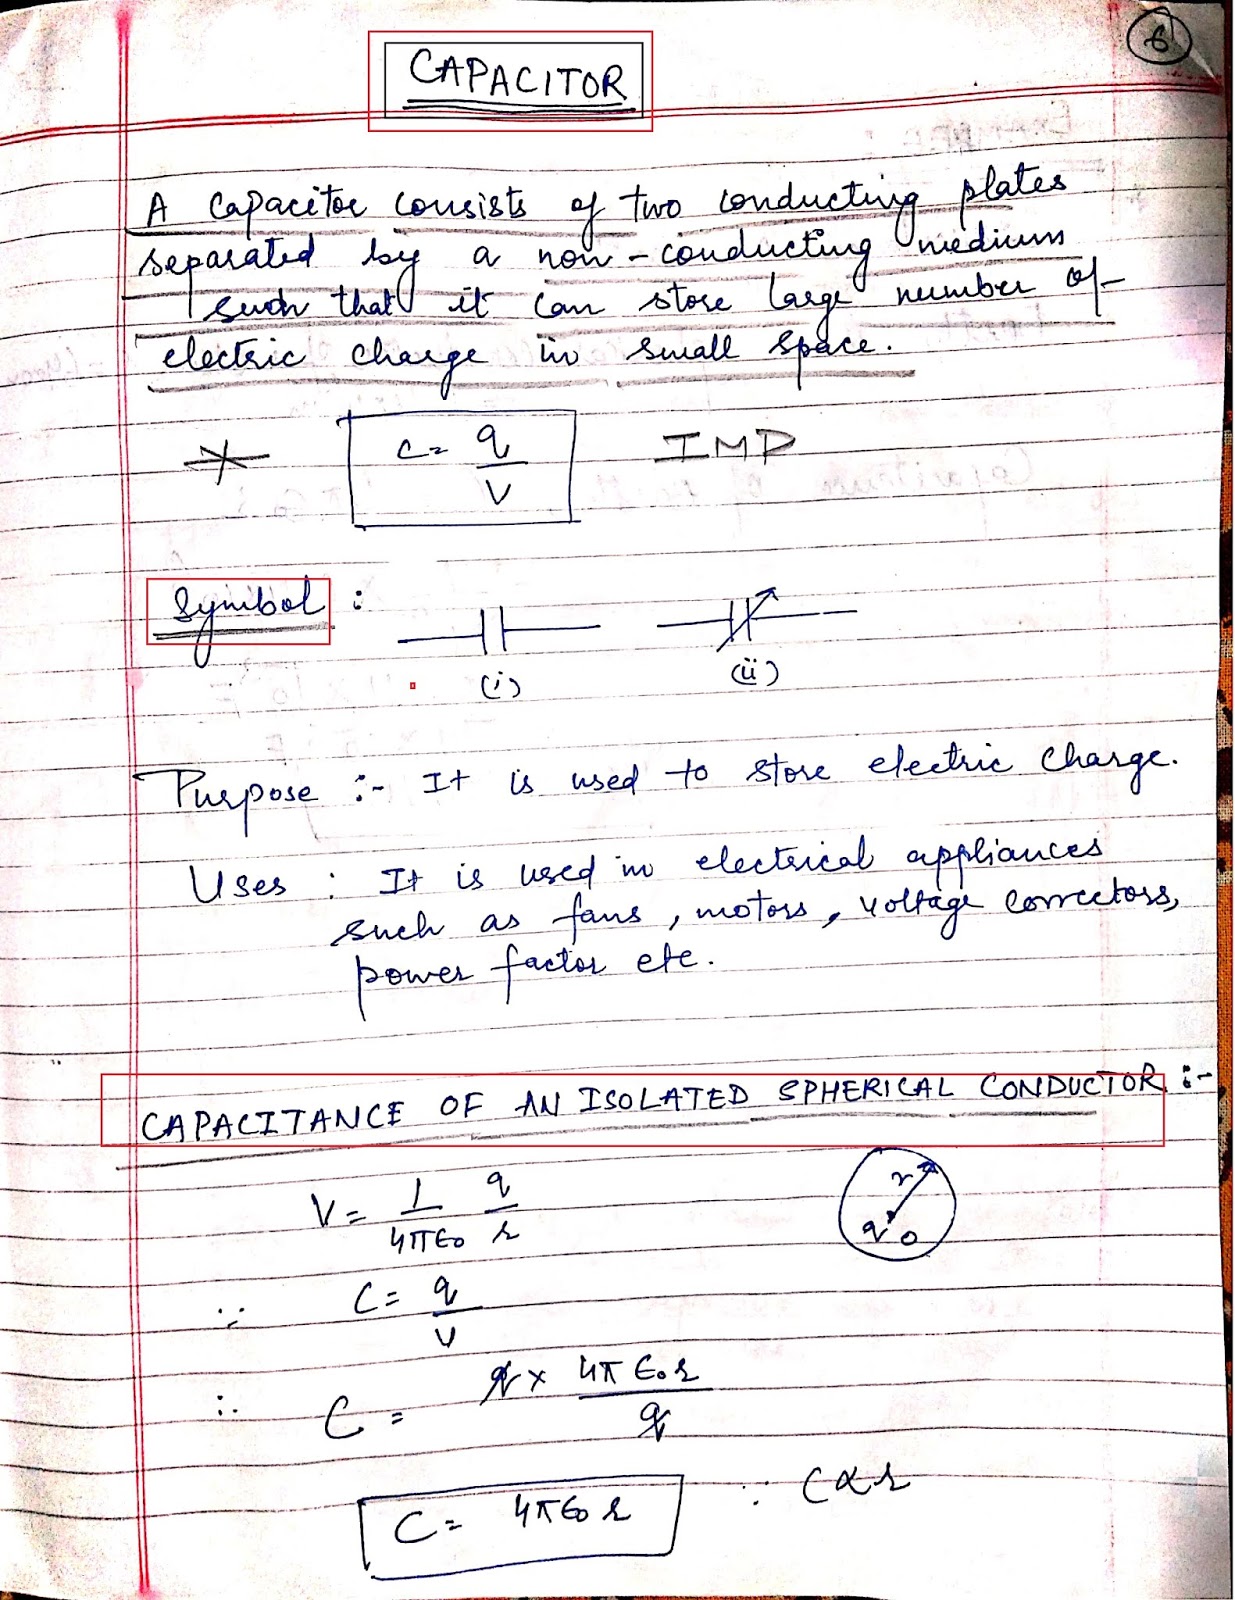 6
CAPACITOR
A capacitor consists of two conducting plates
separated by a non-conducting medium
such that it can store large number of
electric charge in small space.
C = q/V IMP
Symbol :
(i) (ii)
Purpose :- It is used to store electric charge.
Uses : It is used in electrical appliances
such as fans, motors, voltage correctors,
power factor etc.
CAPACITANCE OF AN ISOLATED SPHERICAL CONDUCTOR :-
V = 1/4πε₀ q/r
r
q O
∵ C = q/V
∴ C = q × 4πε₀r/q
C = 4πε₀r ∵ C ∝ r